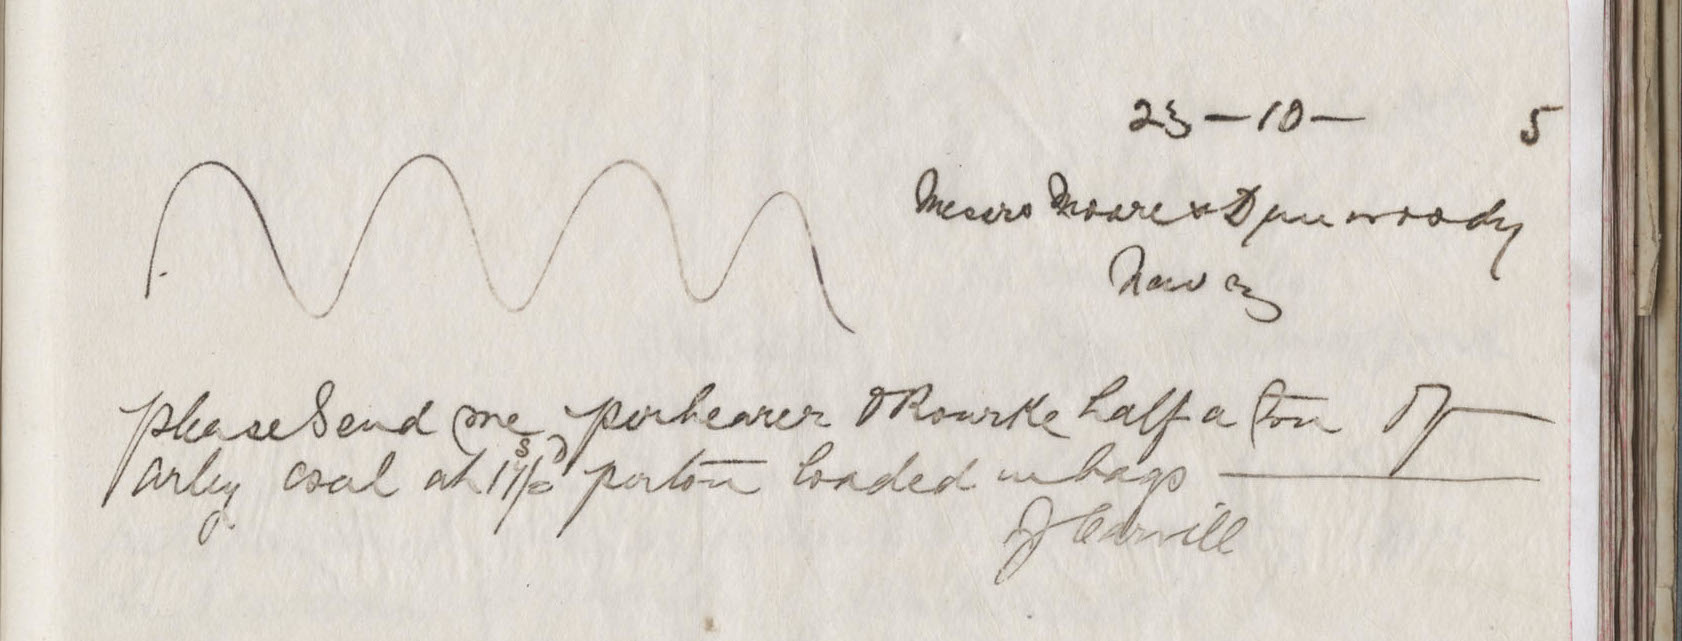 23 - 10 - 5
Messrs Moore & Dunwoody
Newry
please Send me per bearer O Rourke half a ton of
arley coal at 17s/6D per ton loaded in bags
J Carvill